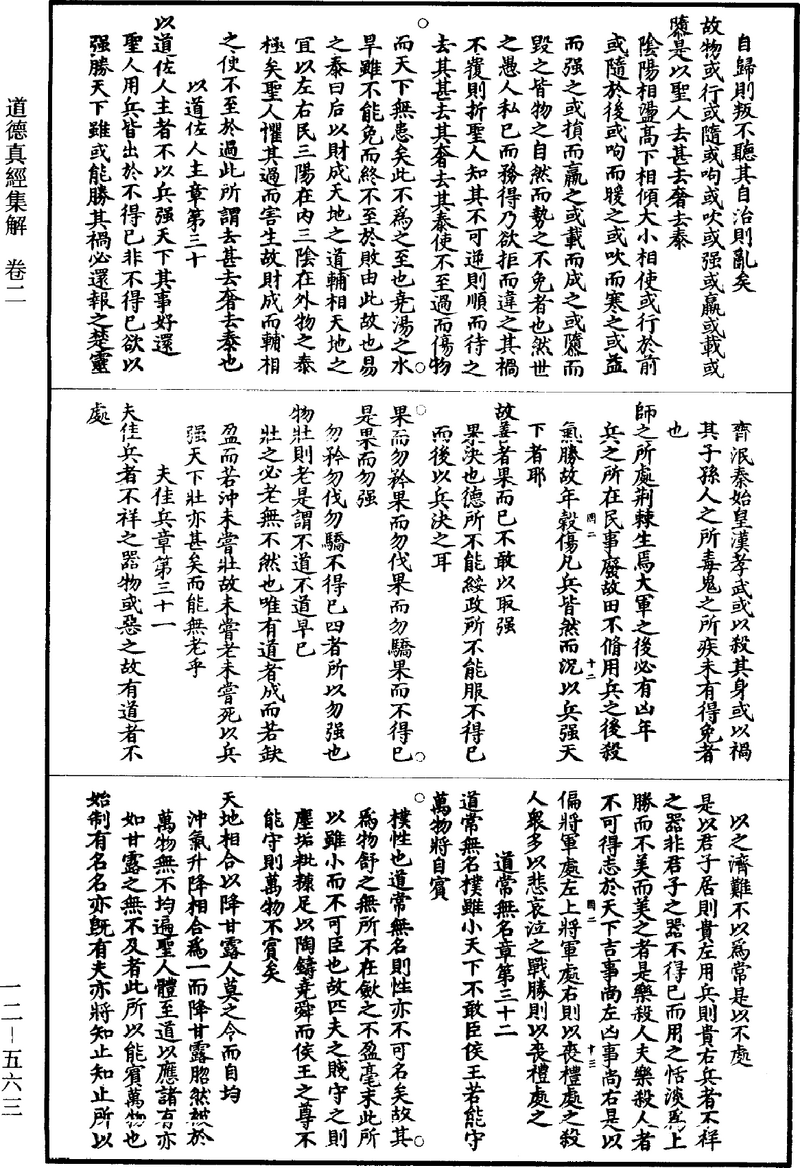 自歸則叛不聽其自治則亂矣
故物或行或隨或呴或吹或强或羸或載或
隳是以聖人去甚去奢去泰
陰陽相盪高下相傾大小相使或行於前
或隨於後或呴而暖之或吹而寒之或益
而强之或損而羸之或載而成之或隳而
毀之皆物之自然而勢之不免者也然世
之愚人私己而務得乃欲拒而違之其禍
不覆則折聖人知其不可逆則順而待之
去其甚去其奢去其泰使不至過而傷物
而天下無患矣此不為之至也堯湯之水
旱雖不能免而終不至於敗由此故也易
之泰曰后以財成天地之道輔相天地之
宜以左右民三陽在內三陰在外物之泰
極矣聖人懼其過而害生故財成而輔相
之使不至於過此所謂去甚去奢去泰也
以道佐人主章第三十
以道佐人主者不以兵强天下其事好還
聖人用兵皆出於不得已非不得已欲以
强勝天下雖或能勝其禍必還報之楚靈
齊泯秦始皇漢孝武或以殺其身或以禍
其子孫人之所毒鬼之所疾未有得免者
也
師之所處荆棘生焉大軍之後必有凶年
兵之所在民事廢故田不脩用兵之後殺
氣勝故年穀傷凡兵皆然而況以兵强天
下者耶
故善者果而已不敢以取强
果決也德所不能綏政所不能服不得已
而後以兵決之耳
果而勿矜果而勿伐果而勿驕果而不得已
是果而勿强
勿矜勿伐勿驕不得已四者所以勿强也
物壯則老是謂不道不道早已
壯之必老無不然也唯有道者成而若缺
盈而若沖未嘗壯故未嘗老未嘗死以兵
强天下壯亦甚矣而能無老乎
夫佳兵章第三十一
夫佳兵者不祥之器物或惡之故有道者不
處
以之濟難不以為常是以不處
是以君子居則貴左用兵則貴右兵者不祥
之器非君子之器不得已而用之恬淡爲上
勝而不美而美之者是樂殺人夫樂殺人者
不可得志於天下吉事尚左凶事尚右是以
偏將軍處左上將軍處右則以喪禮處之殺
人衆多以悲哀泣之戰勝則以喪禮處之
道常無名章第三十二
道常無名樸雖小天下不敢臣侯王若能守
萬物將自賓
樸性也道常無名則性亦不可名矣故其
爲物舒之無所不在斂之不盈毫末此所
以雖小而不可臣也故匹夫之賤守之則
塵垢粃糠足以陶鑄堯舜而侯王之尊不
能守則萬物不賓矣
天地相合以降甘露人莫之令而自均
沖氣升降相合爲一而降甘露脗然被於
萬物無不均遍聖人體至道以應諸有亦
如甘露之無不及者此所以能賓萬物也
始制有名名亦旣有夫亦將知止知止所以
道德真經集解　卷二
一二—五六三
四二
十二
四二
十三